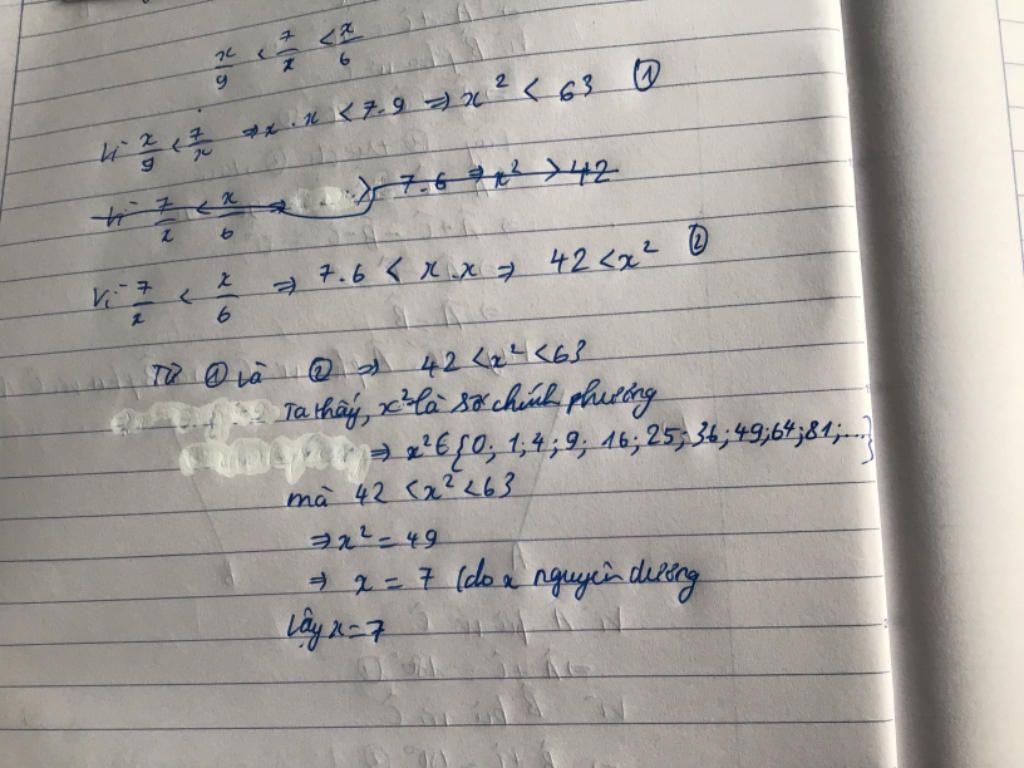 x/9 < 7/x < x/6
Vì x/9 < 7/x ⇒ x . x < 7.9 ⇒ x² < 63 ①
Vì 7/x < x/6 ⇒ 7.6 ⇒ x² > 42
Vì 7/x < x/6 ⇒ 7.6 < x.x ⇒ 42 < x² ②
Từ ① và ② ⇒ 42 < x² < 63
Ta thấy, x² là số chính phương
⇒ x² ∈ {0; 1; 4; 9; 16; 25; 36; 49; 64; 81; ...}
mà 42 < x² < 63
⇒ x² = 49
⇒ x = 7 (do x nguyên dương
Vậy x = 7